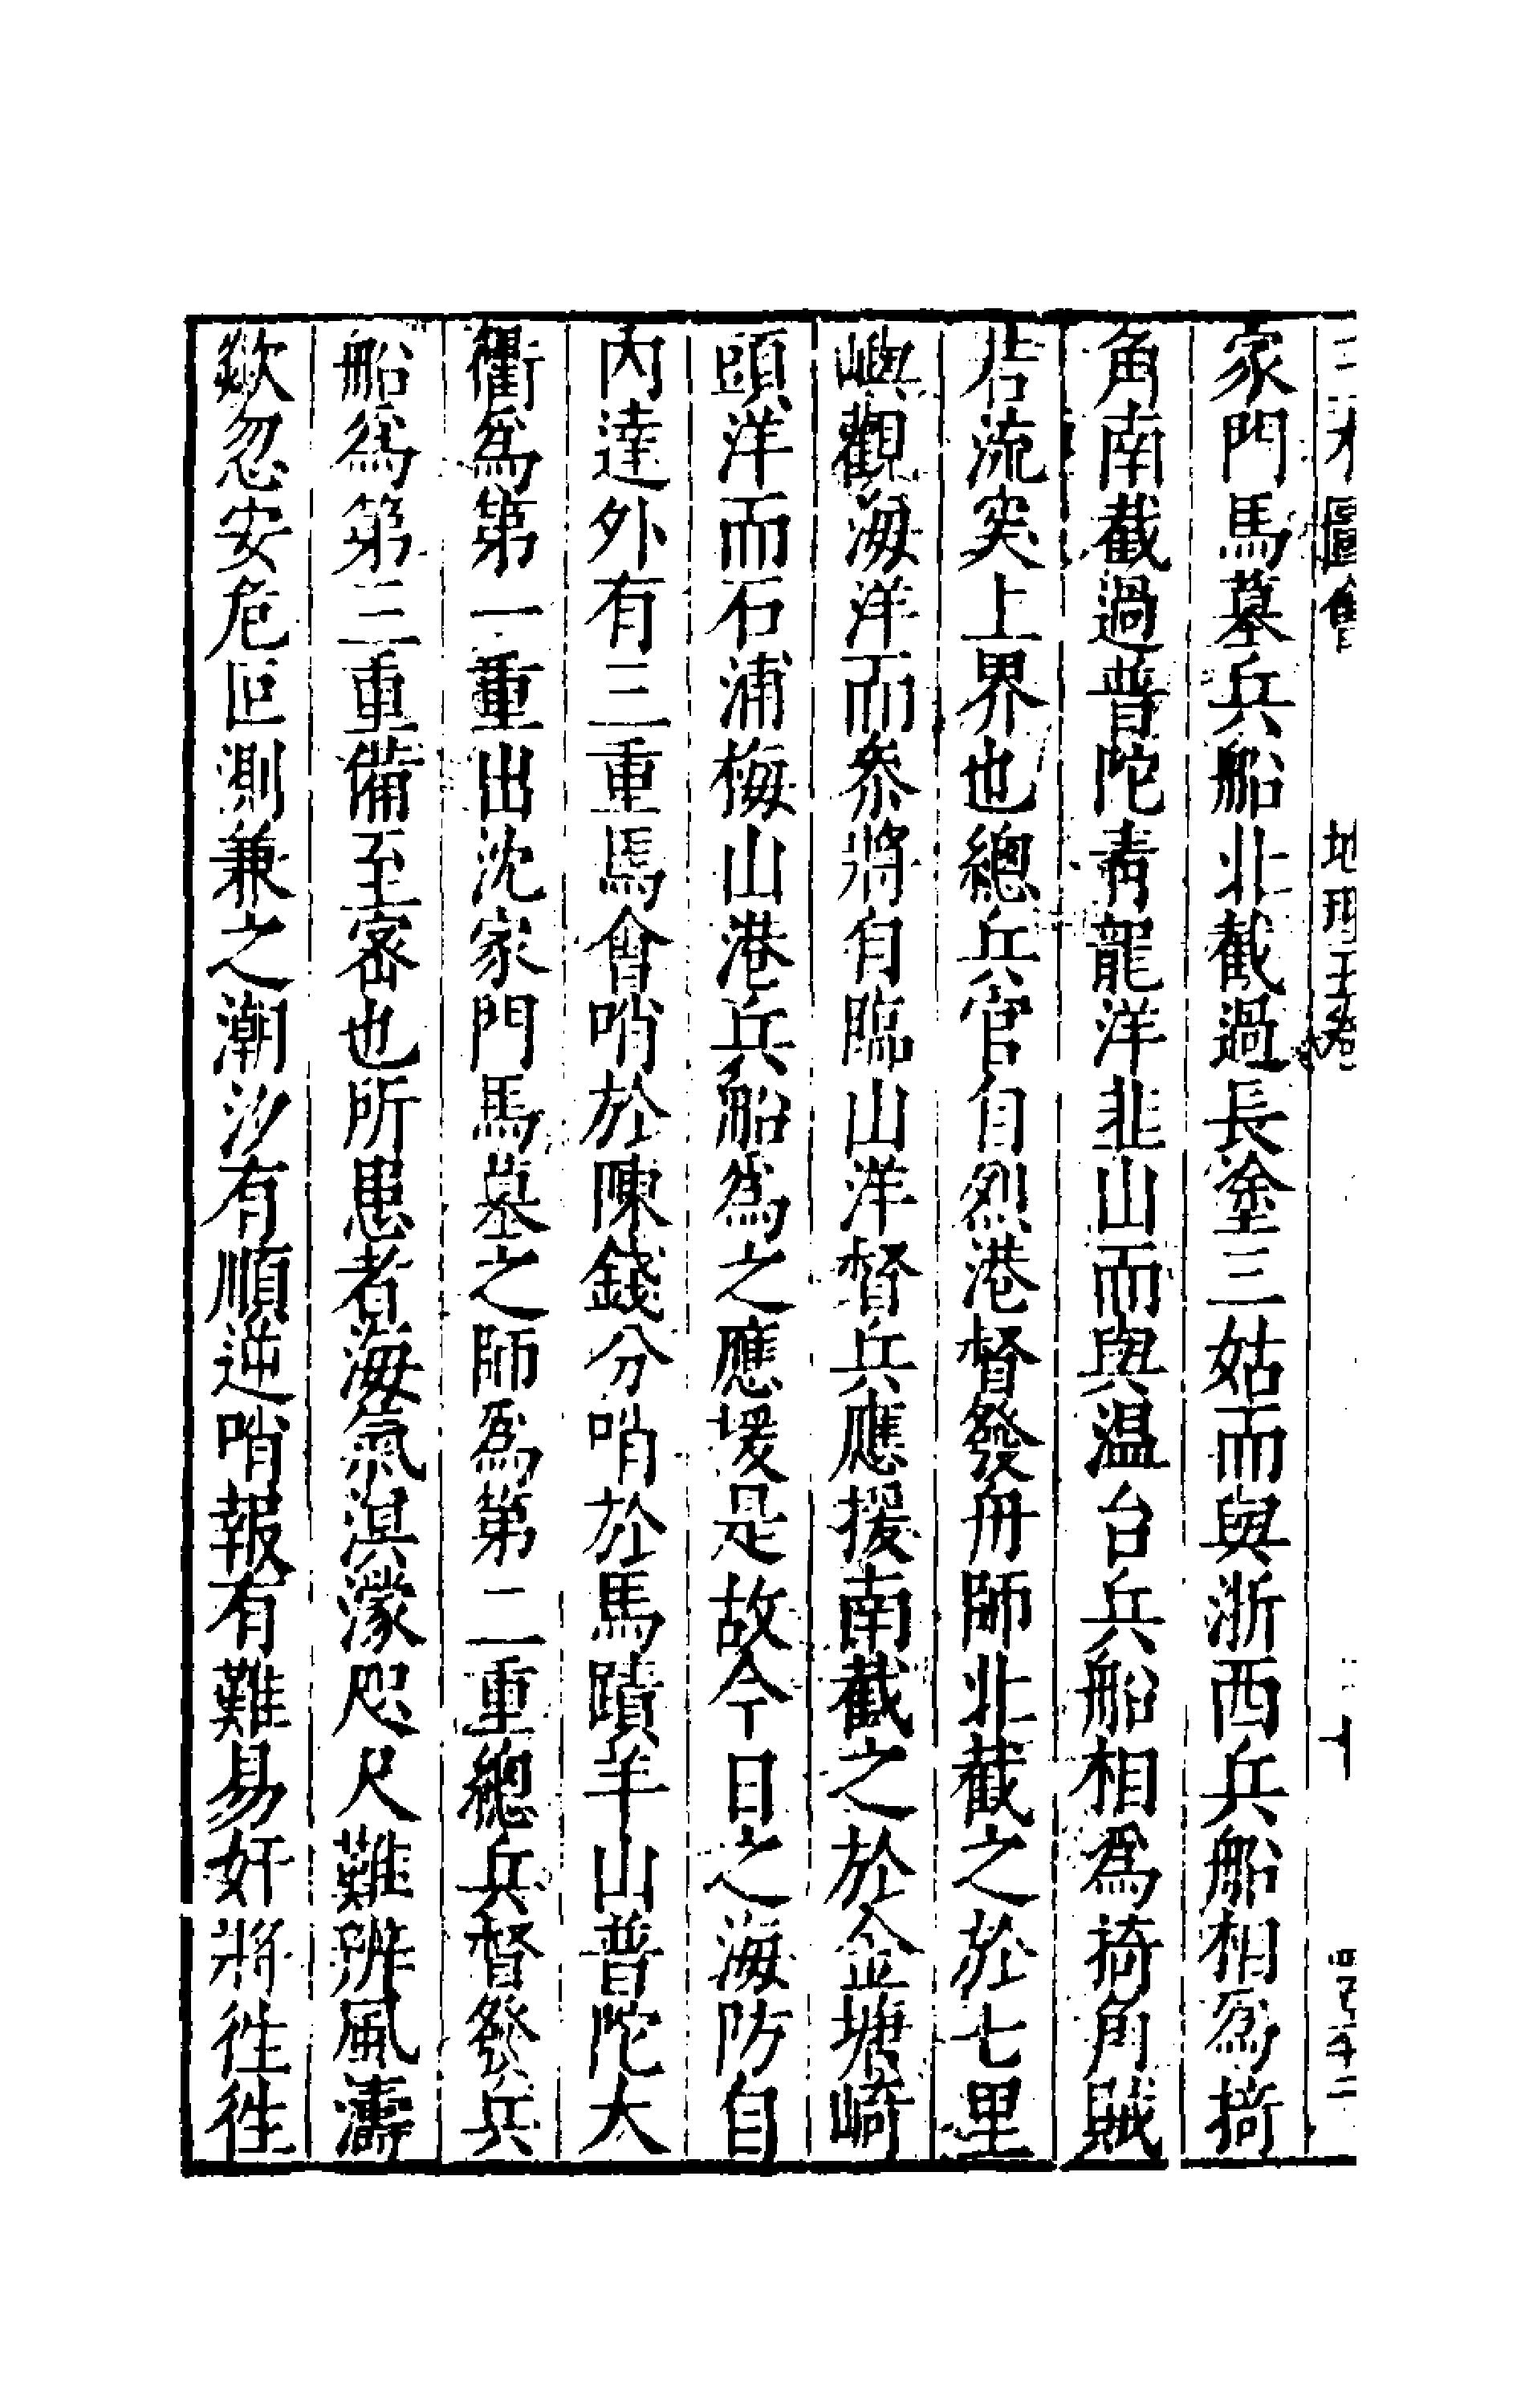 圖會 地理五卷 十
家門馬墓兵船北截過長塗三姑而與浙西兵船相爲掎
角南截過普陀青龍洋韭山而與温台兵船相爲掎角賊
若流突上界也總兵官自烈港督發舟師北截之於七里
嶼觀海洋而叅將自臨山洋督兵應援南截之於金塘崎
頭洋而石浦梅山港兵船爲之應援是故今日之海防自
内達外有三重焉會哨於陳錢分哨於馬蹟羊山普陀大
衢爲第一重出沈家門馬墓之師爲第二重總兵督發兵
船爲第三重備至宻也所患者海氣溟濛咫尺難辨風濤
歘忽安危叵測兼之潮汐有順逆哨報有難易奸將徃徃